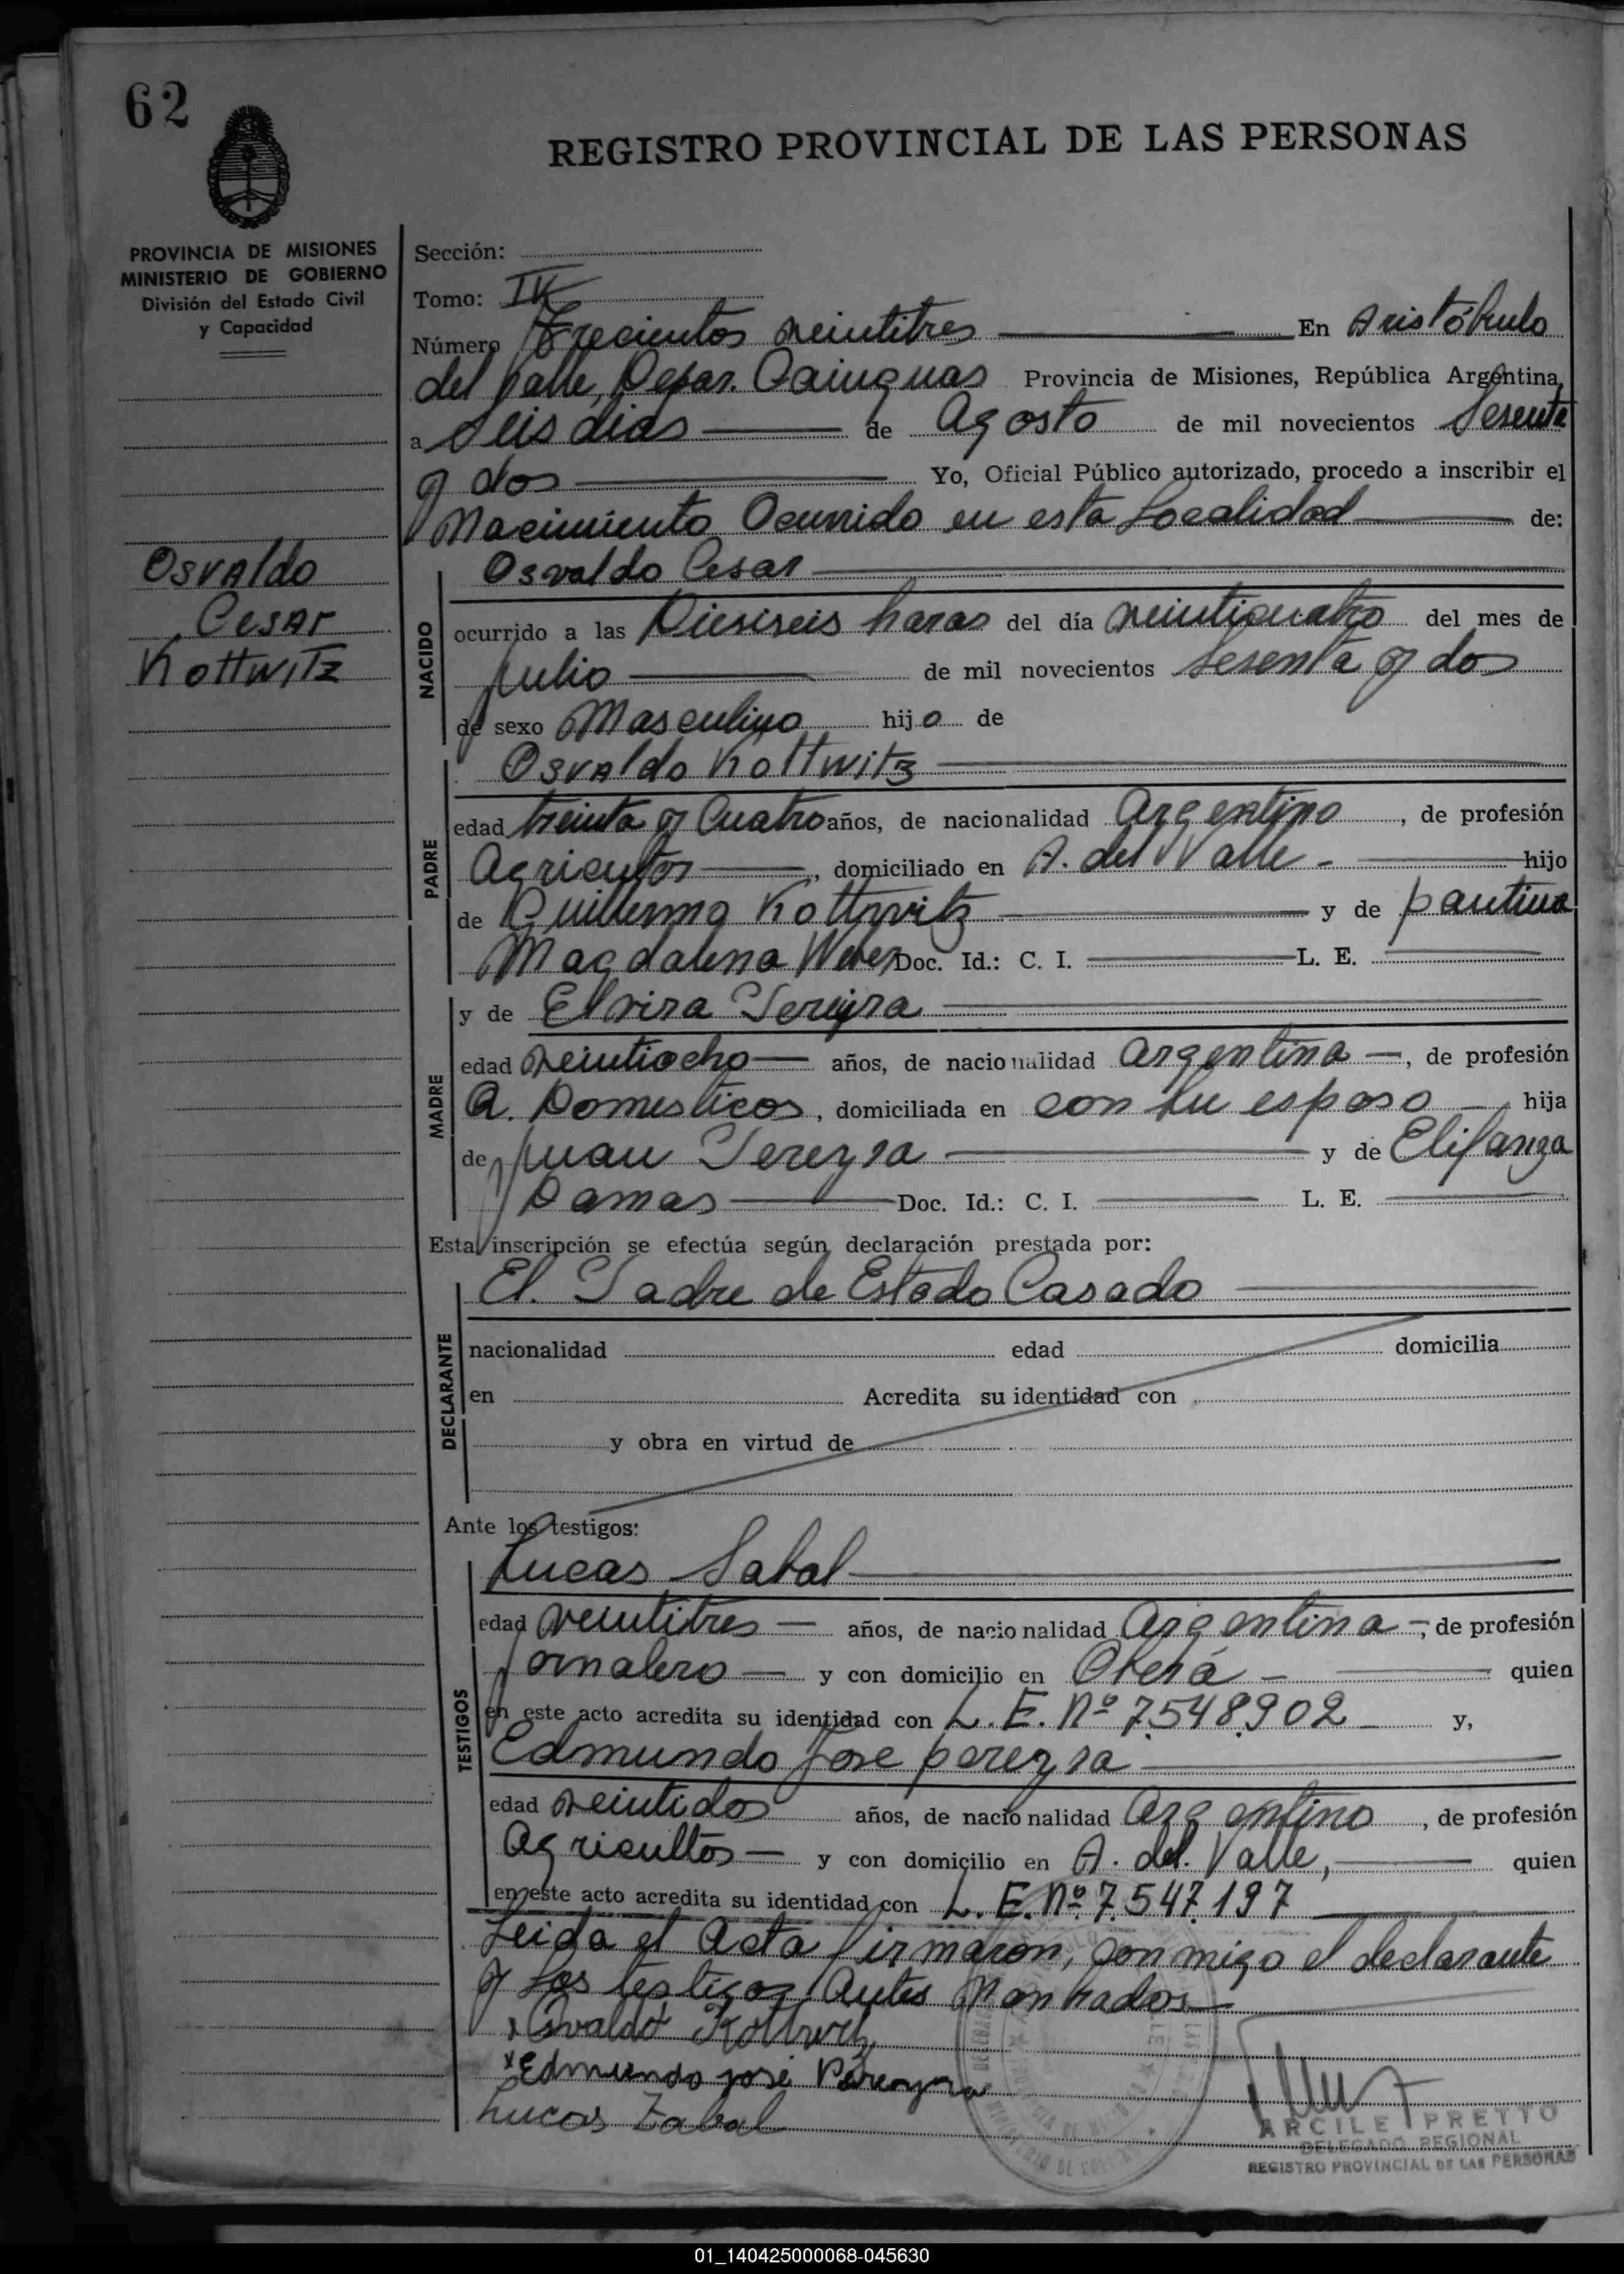 62
REGISTRO PROVINCIAL DE LAS PERSONAS
PROVINCIA DE MISIONES
MINISTERIO DE GOBIERNO
División del Estado Civil
y Capacidad
Osvaldo
Cesar
Kottwitz
Sección:
Tomo: IV
Número Trecientos veintitres En Aristóbulo
del Valle, Depar. Cainguas Provincia de Misiones, República Argentina,
a Seis dias de Agosto de mil novecientos Sesenta
y dos Yo, Oficial Público autorizado, procedo a inscribir el
Nacimiento Ocurrido en esta Localidad de:
Osvaldo Cesar
NACIDO
ocurrido a las Diesiseis horas del día veinticuatro del mes de
Julio de mil novecientos Sesenta y dos
de sexo Masculino hijo de
Osvaldo Kottwitz
PADRE
edad treinta y Cuatro años, de nacionalidad Argentino, de profesión
Agricultor, domiciliado en A. del Valle - hijo
de Guillermo Kottwitz y de
Magdalena Doc. Id.: C. I. L. E.
y de Elvira Pereyra
MADRE
edad veintiocho años, de nacionalidad Argentina, de profesión
Q. Domesticos, domiciliada en con su esposo hija
de Juan Pereyra y de
Damas Doc. Id.: C. I. L. E.
Esta inscripción se efectúa según declaración prestada por:
El. Padre de Estado Casado
DECLARANTE
nacionalidad edad domicilia
en Acredita su identidad con
y obra en virtud de
Ante los testigos:
Lucas Sabal
TESTIGOS
edad veintitres años, de nacionalidad Argentina, de profesión
Jornalero y con domicilio en Oberá - quien
en este acto acredita su identidad con L. E. Nº 7.548.902 y,
Edmundo Jose Pereyra
edad veintidos años, de nacionalidad Argentino, de profesión
Agricultor y con domicilio en A. del. Valle, quien
en este acto acredita su identidad con L. E. Nº 7.547.197
Leida el Acta firmaron, conmigo el declarante
y los testigos Antes Nonbrados
Osvaldo Kottwitz
x Edmundo josé Pereyra
Lucas Zabal
ARCILE PRETTO
DELEGADO REGIONAL
REGISTRO PROVINCIAL DE LAS PERSONAS
01_140425000068-045630